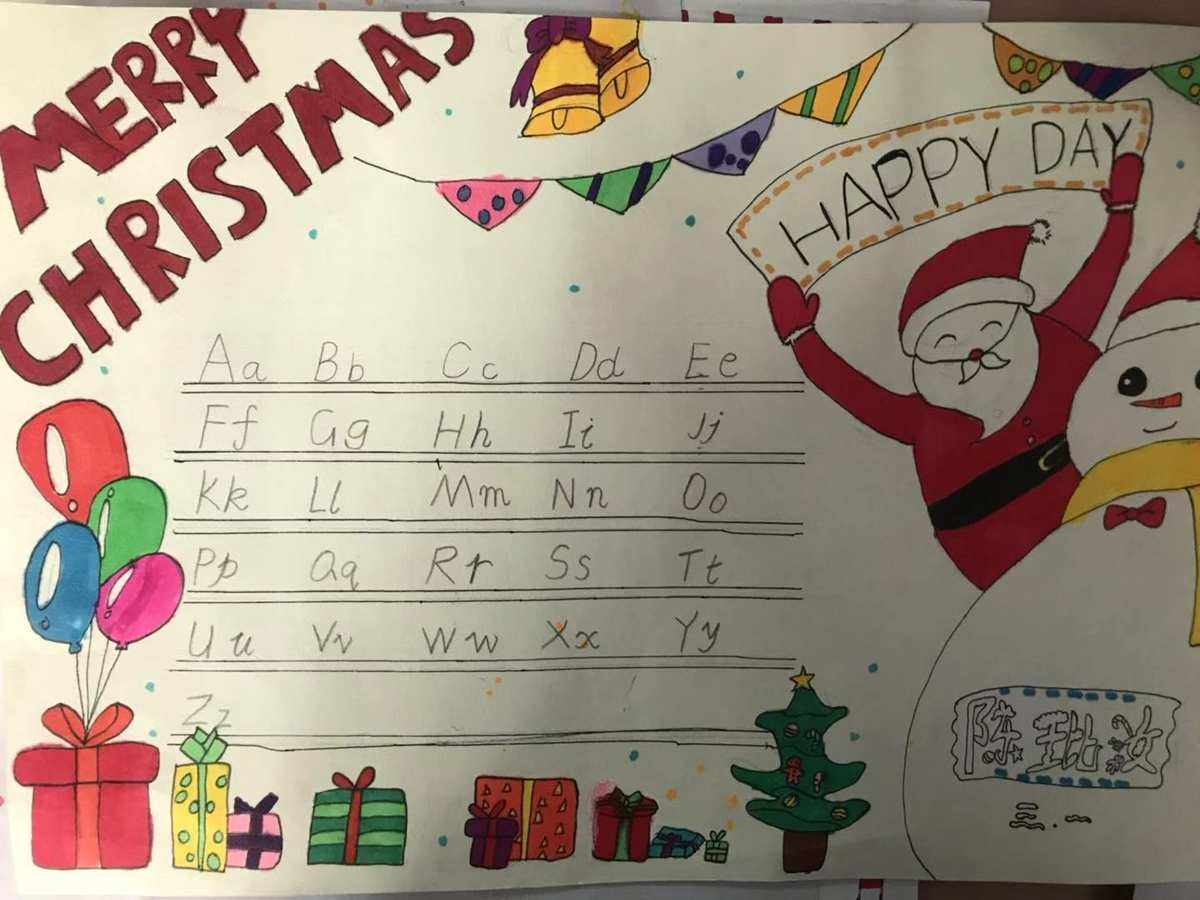 MERRY
CHRISTMAS
HAPPY DAY
Aa Bb Cc Dd Ee
Ff Gg Hh Ii Jj
Kk Ll Mm Nn Oo
Pp Qq Rr Ss Tt
Uu Vv Ww Xx Yy
Zz
陈
三.一